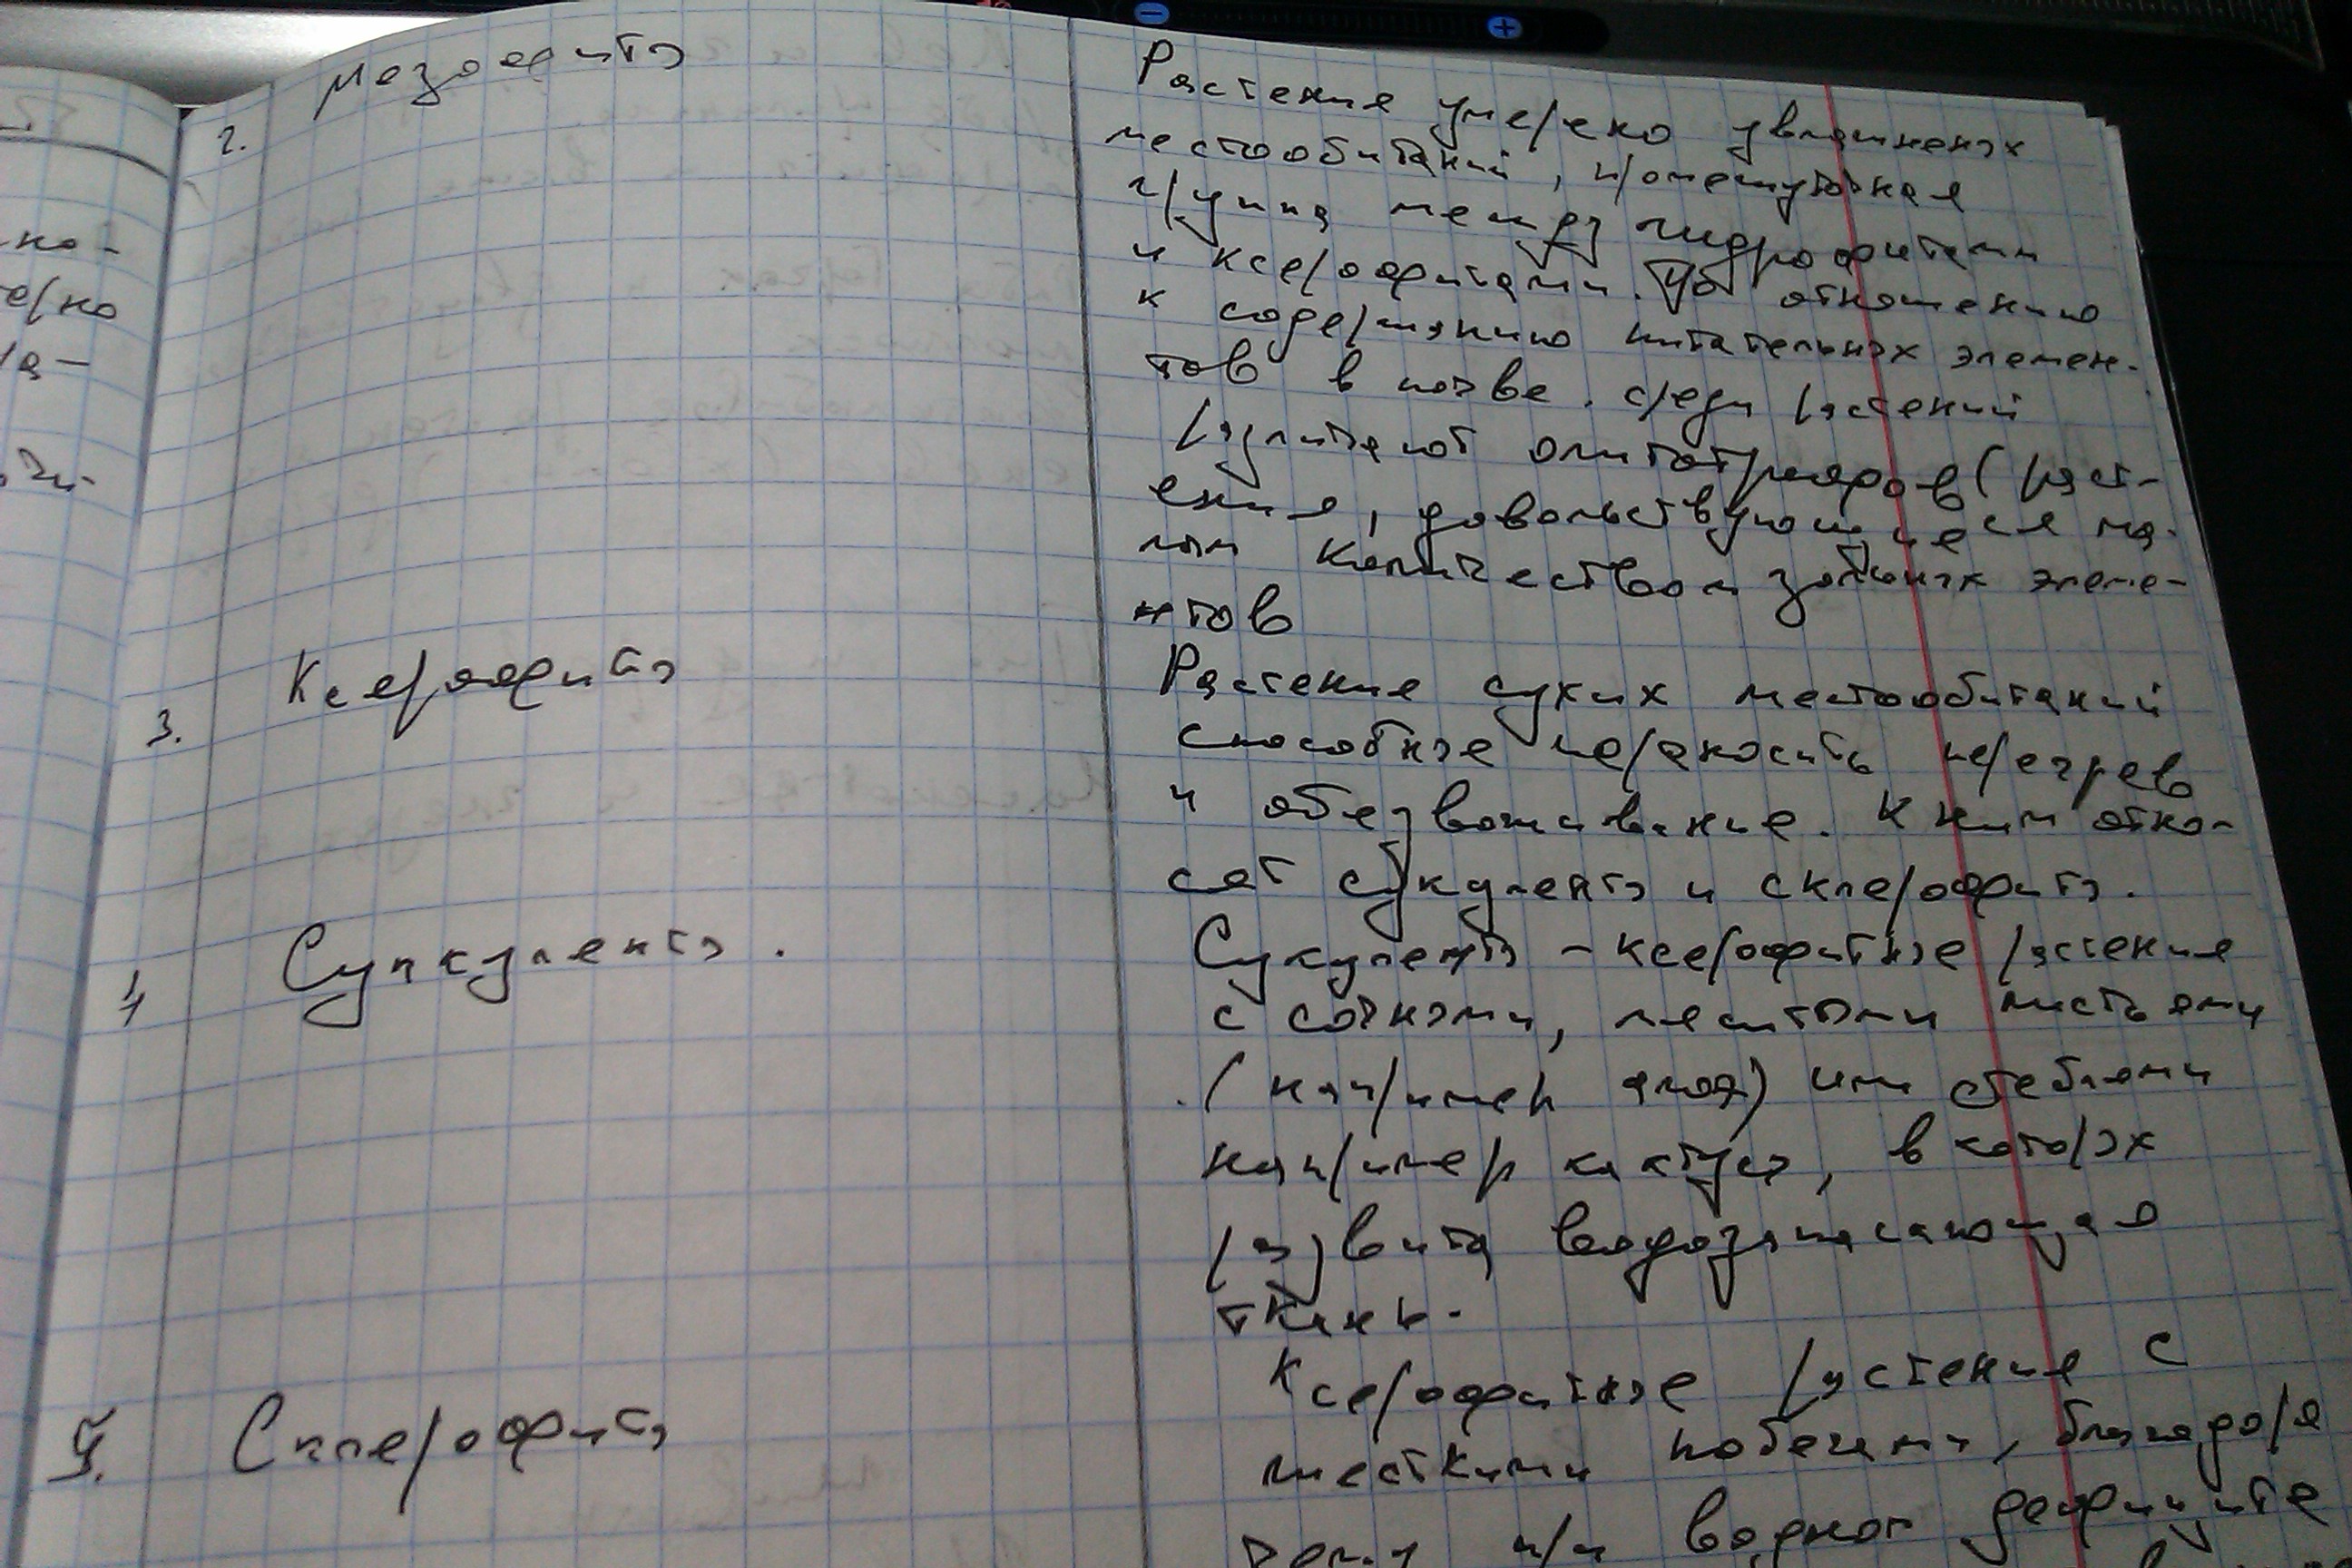 2. Мезофиты
Растения умерено увлажненых
местообитаний, промежуточная
группа между гидрофитами
и ксерофитами. По отношению
к содержанию питательных элемен-
тов в почве. среди растений
различают олиготрофов (раст-
ения, довольствующиеся ма-
лым количеством зольных элеме-
нтов
3. Ксерофиты
Растения сухих местообитаний
способные переносить перегрев
и обезвоживание. К ним отно-
сят сукуленты и склерофиты.
4 Суккуленты.
Сукуленты - ксерофитные растения
с сочными, мяситыми листьями
(например алоэ) или стеблями
например кактусы, в которых
развита водозапасающая
ткань.
5. Склерофиты
Ксерофитные растения с
жесткими побегами, благодоря
чему при водном дефиците
но-
ерно
ра-